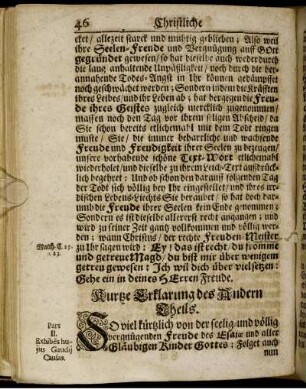 46 Christliche
cket/ allezeit starck und muthig geblieben; Also weil
ihre Seelen-Freude und Vergnügung auff GOtt
gegründet gewesen/ so hat dieselbe auch weder durch
die lang anhaltende Unpäßligkeit/ noch durch die her-
annahende Todes-Angst in Ihr können gedämpffet
noch geschwächet werden; Sondern indem die Kräfften
ihres Leibes/ und ihr Leben ab; hat hergegen die Freu-
de ihres Geistes zugleich mercklich zugenommen/
massen noch den Tag vor ihrem seligen Abscheid/ da
Sie schon bereits etlichemahl mit dem Tode ringen
muste/ Sie/ die immer beharrliche und wachsende
Freude und Freudigkeit ihrer Seelen zu bezeugen/
unsere vorhabende schöne Text-Wort etlichemahl
wiederholet/ und dieselbe zu ihrem Leich-Text ausdrück-
lich begehret: Und ob schon den darauf folgenden Tag
der Todt sich völlig bey Ihr eingestellet/ und ihres ir-
dischen Lebens-Liechts Sie beraubet/ so hat doch dar-
umb die Freude ihrer Seelen kein Ende genommen;
Sondern es ist dieselbe allererst recht angangen; und
wird zu seiner Zeit gantz vollkommen und völlig wer-
den: wann Christus/ der rechte Freuden-Meister
zu Ihr sagen wird: Ey/ das ist recht/ du fromme
und getreue Magd/ du bist über wenigem
getreu gewesen: Ich wil dich über viel setzen:
Gehe ein in deines HErren Freude.
Matth. 25.
v. 23.
Kurtze Erklärung des Andern
Theils.
Pars
II.
Exhibēs hu-
jus Gaudij
SO viel kürtzlich von der seelig und völlig
vergnügenden Freude des Esaiæ und aller
Gläubigen Kinder Gottes: Folget auch
nun